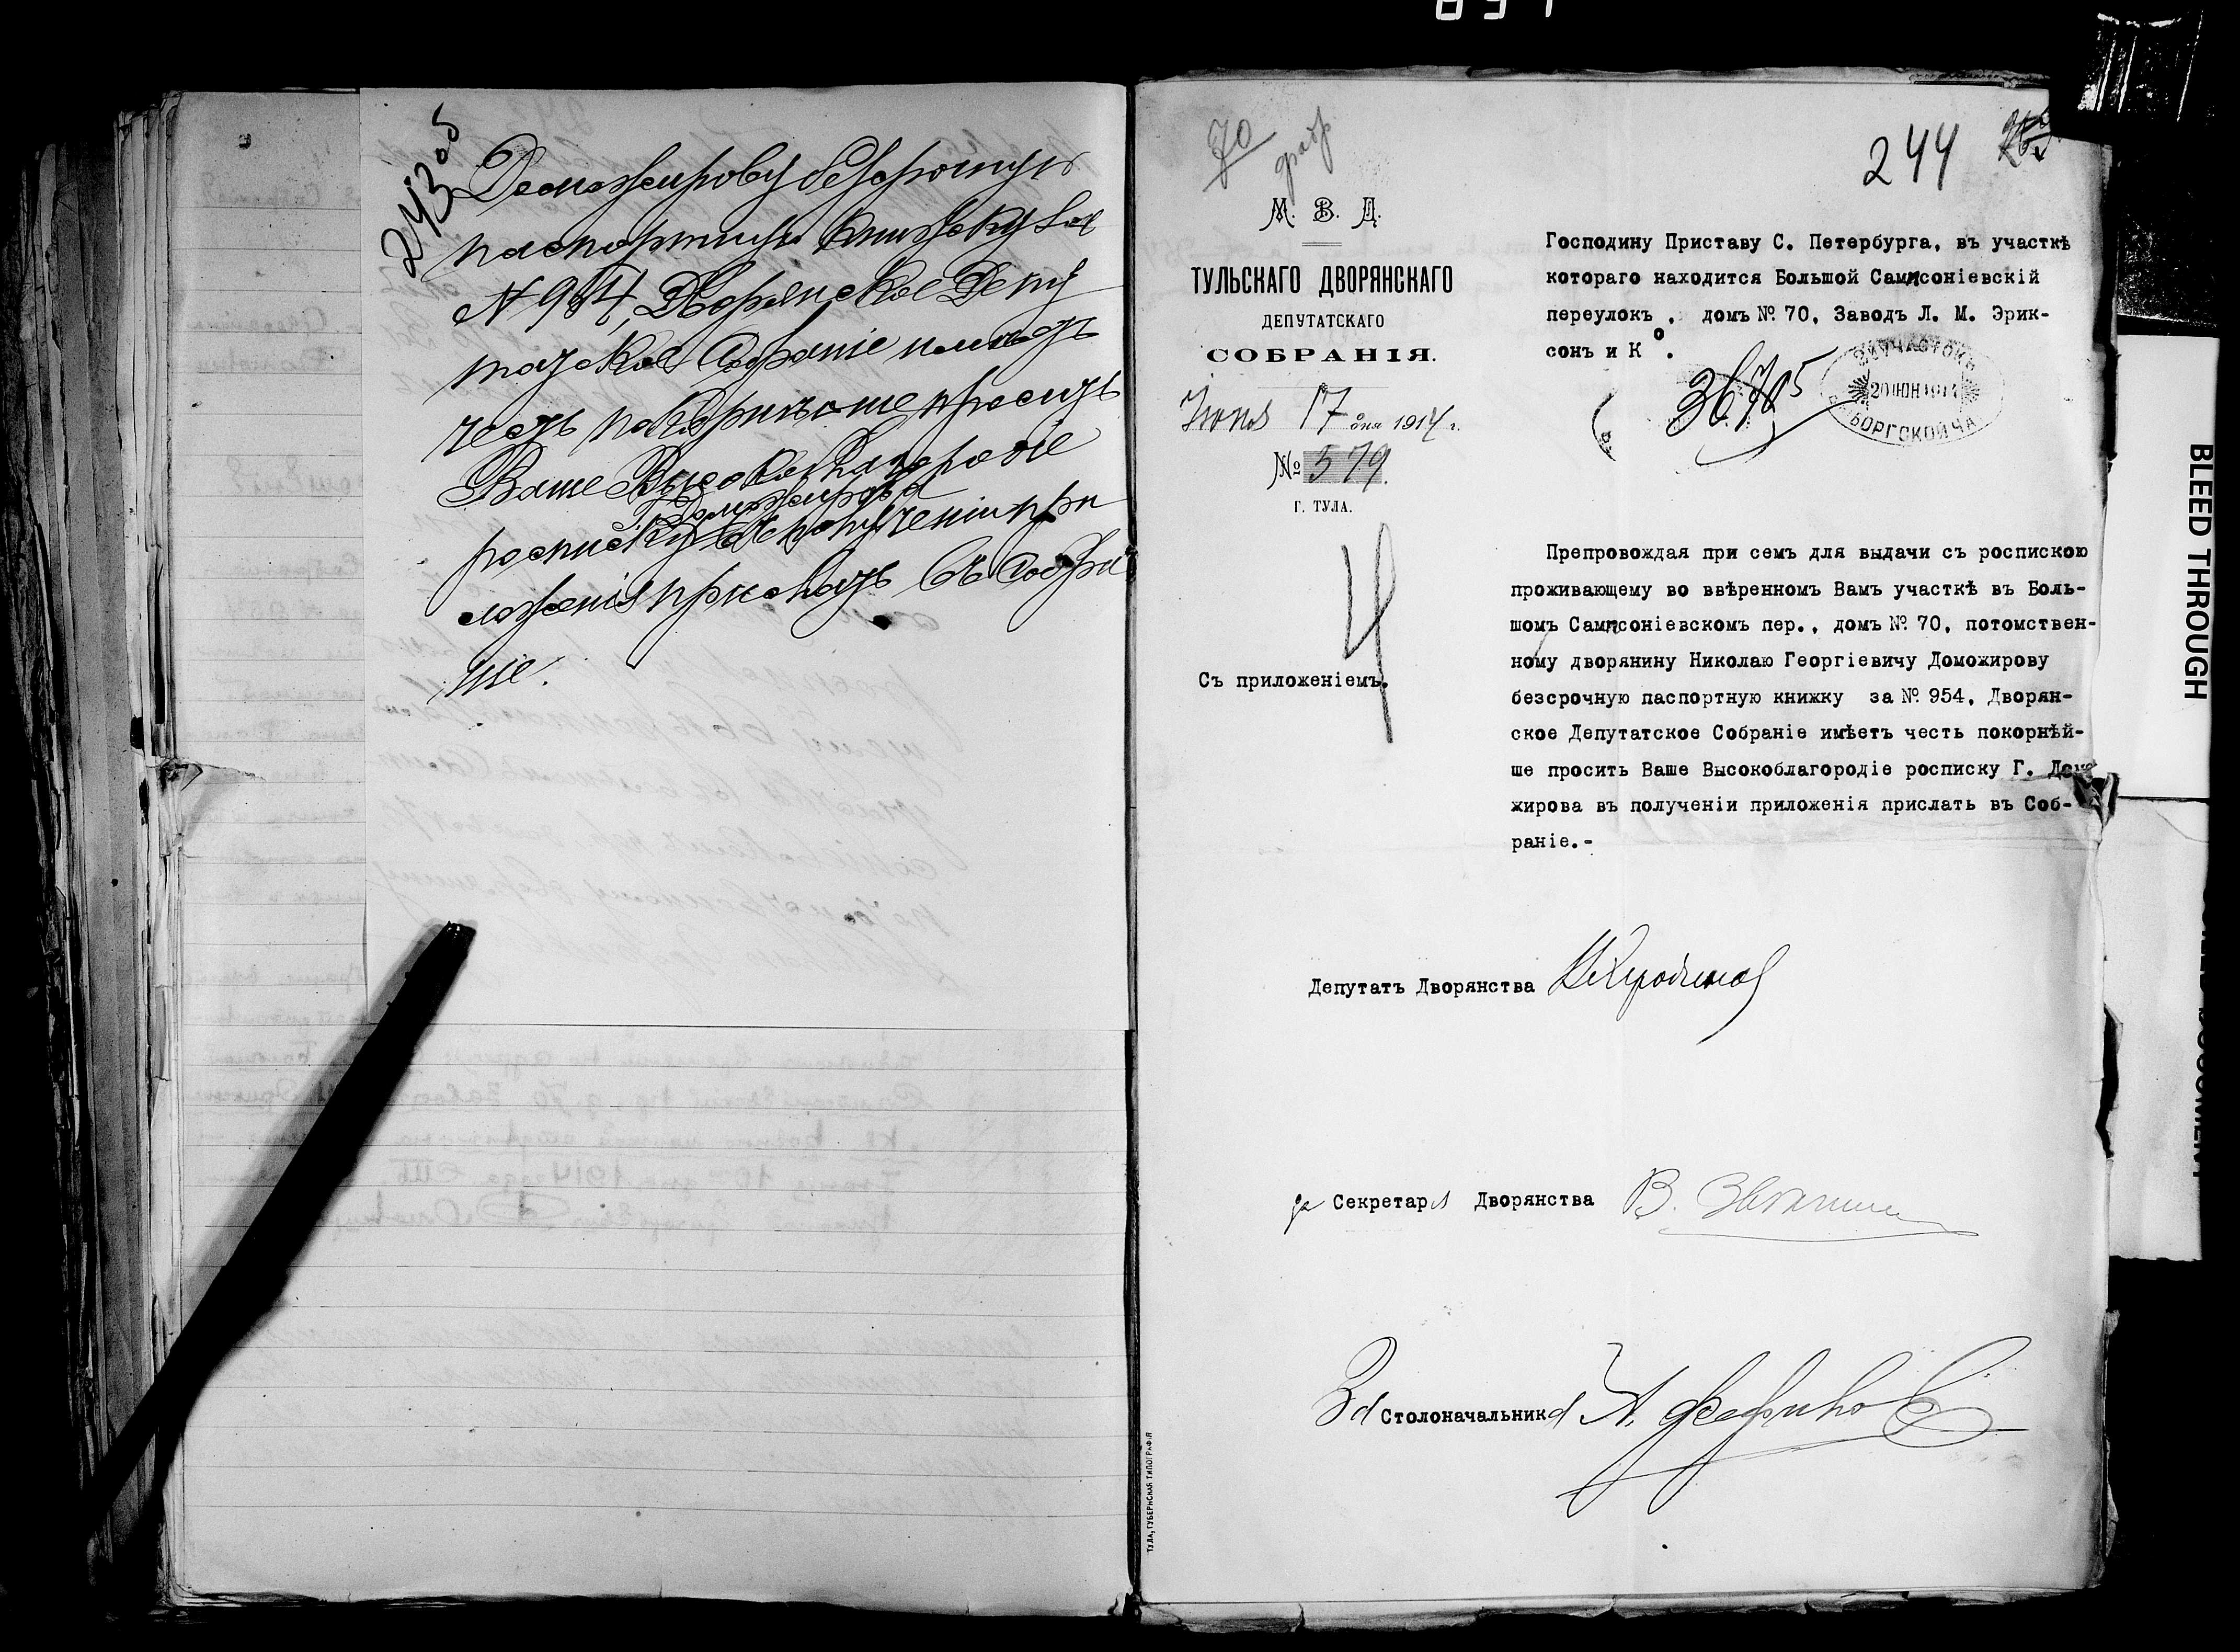 243 об
Доможирову безсрочную
паспортную книжку за
№ 954, Дворянское Депу
татское Собраніе имѣетъ
честь покорнѣйше просить
Ваше Высокоблагородіе
Г. Доможирова
росписку въ полученіи при
ложенія прислать въ Собра
ніе.
70
244
М. В. Д.
ТУЛЬСКАГО ДВОРЯНСКАГО
ДЕПУТАТСКАГО
СОБРАНІЯ.
Іюня 17 дня 1914 г.
№ 579.
Г. ТУЛА.
Съ приложеніемъ.
Господину Приставу С. Петербурга, въ участкѣ
котораго находится Большой Сампсоніевскій
переулокъ , домъ № 70, Заводъ Л. М. Эрик-
сонъ и К о.
20 ІЮН 1914
ВЫБОРГСКОЙ ЧА
Препровождая при семъ для выдачи съ роспискою
проживающему во ввѣренномъ Вамъ участкѣ въ Боль-
шомъ Сампсоніевскомъ пер., домъ № 70, потомствен-
ному дворянину Николаю Георгіевичу Доможирову
безсрочную паспортную книжку за № 954, Дворян-
ское Депутатское Собраніе имѣетъ честь покорнѣй-
ше просить Ваше Высокоблагородіе росписку Г. Домо
жирова въ полученіи приложенія прислать въ Соб-
раніе.-
Депутатъ Дворянства
Секретаря Дворянства В.
За Столоначальника А.
ТУЛА, ГУБЕРНСКАЯ ТИПОГРАФІЯ
BLEED THROUGH